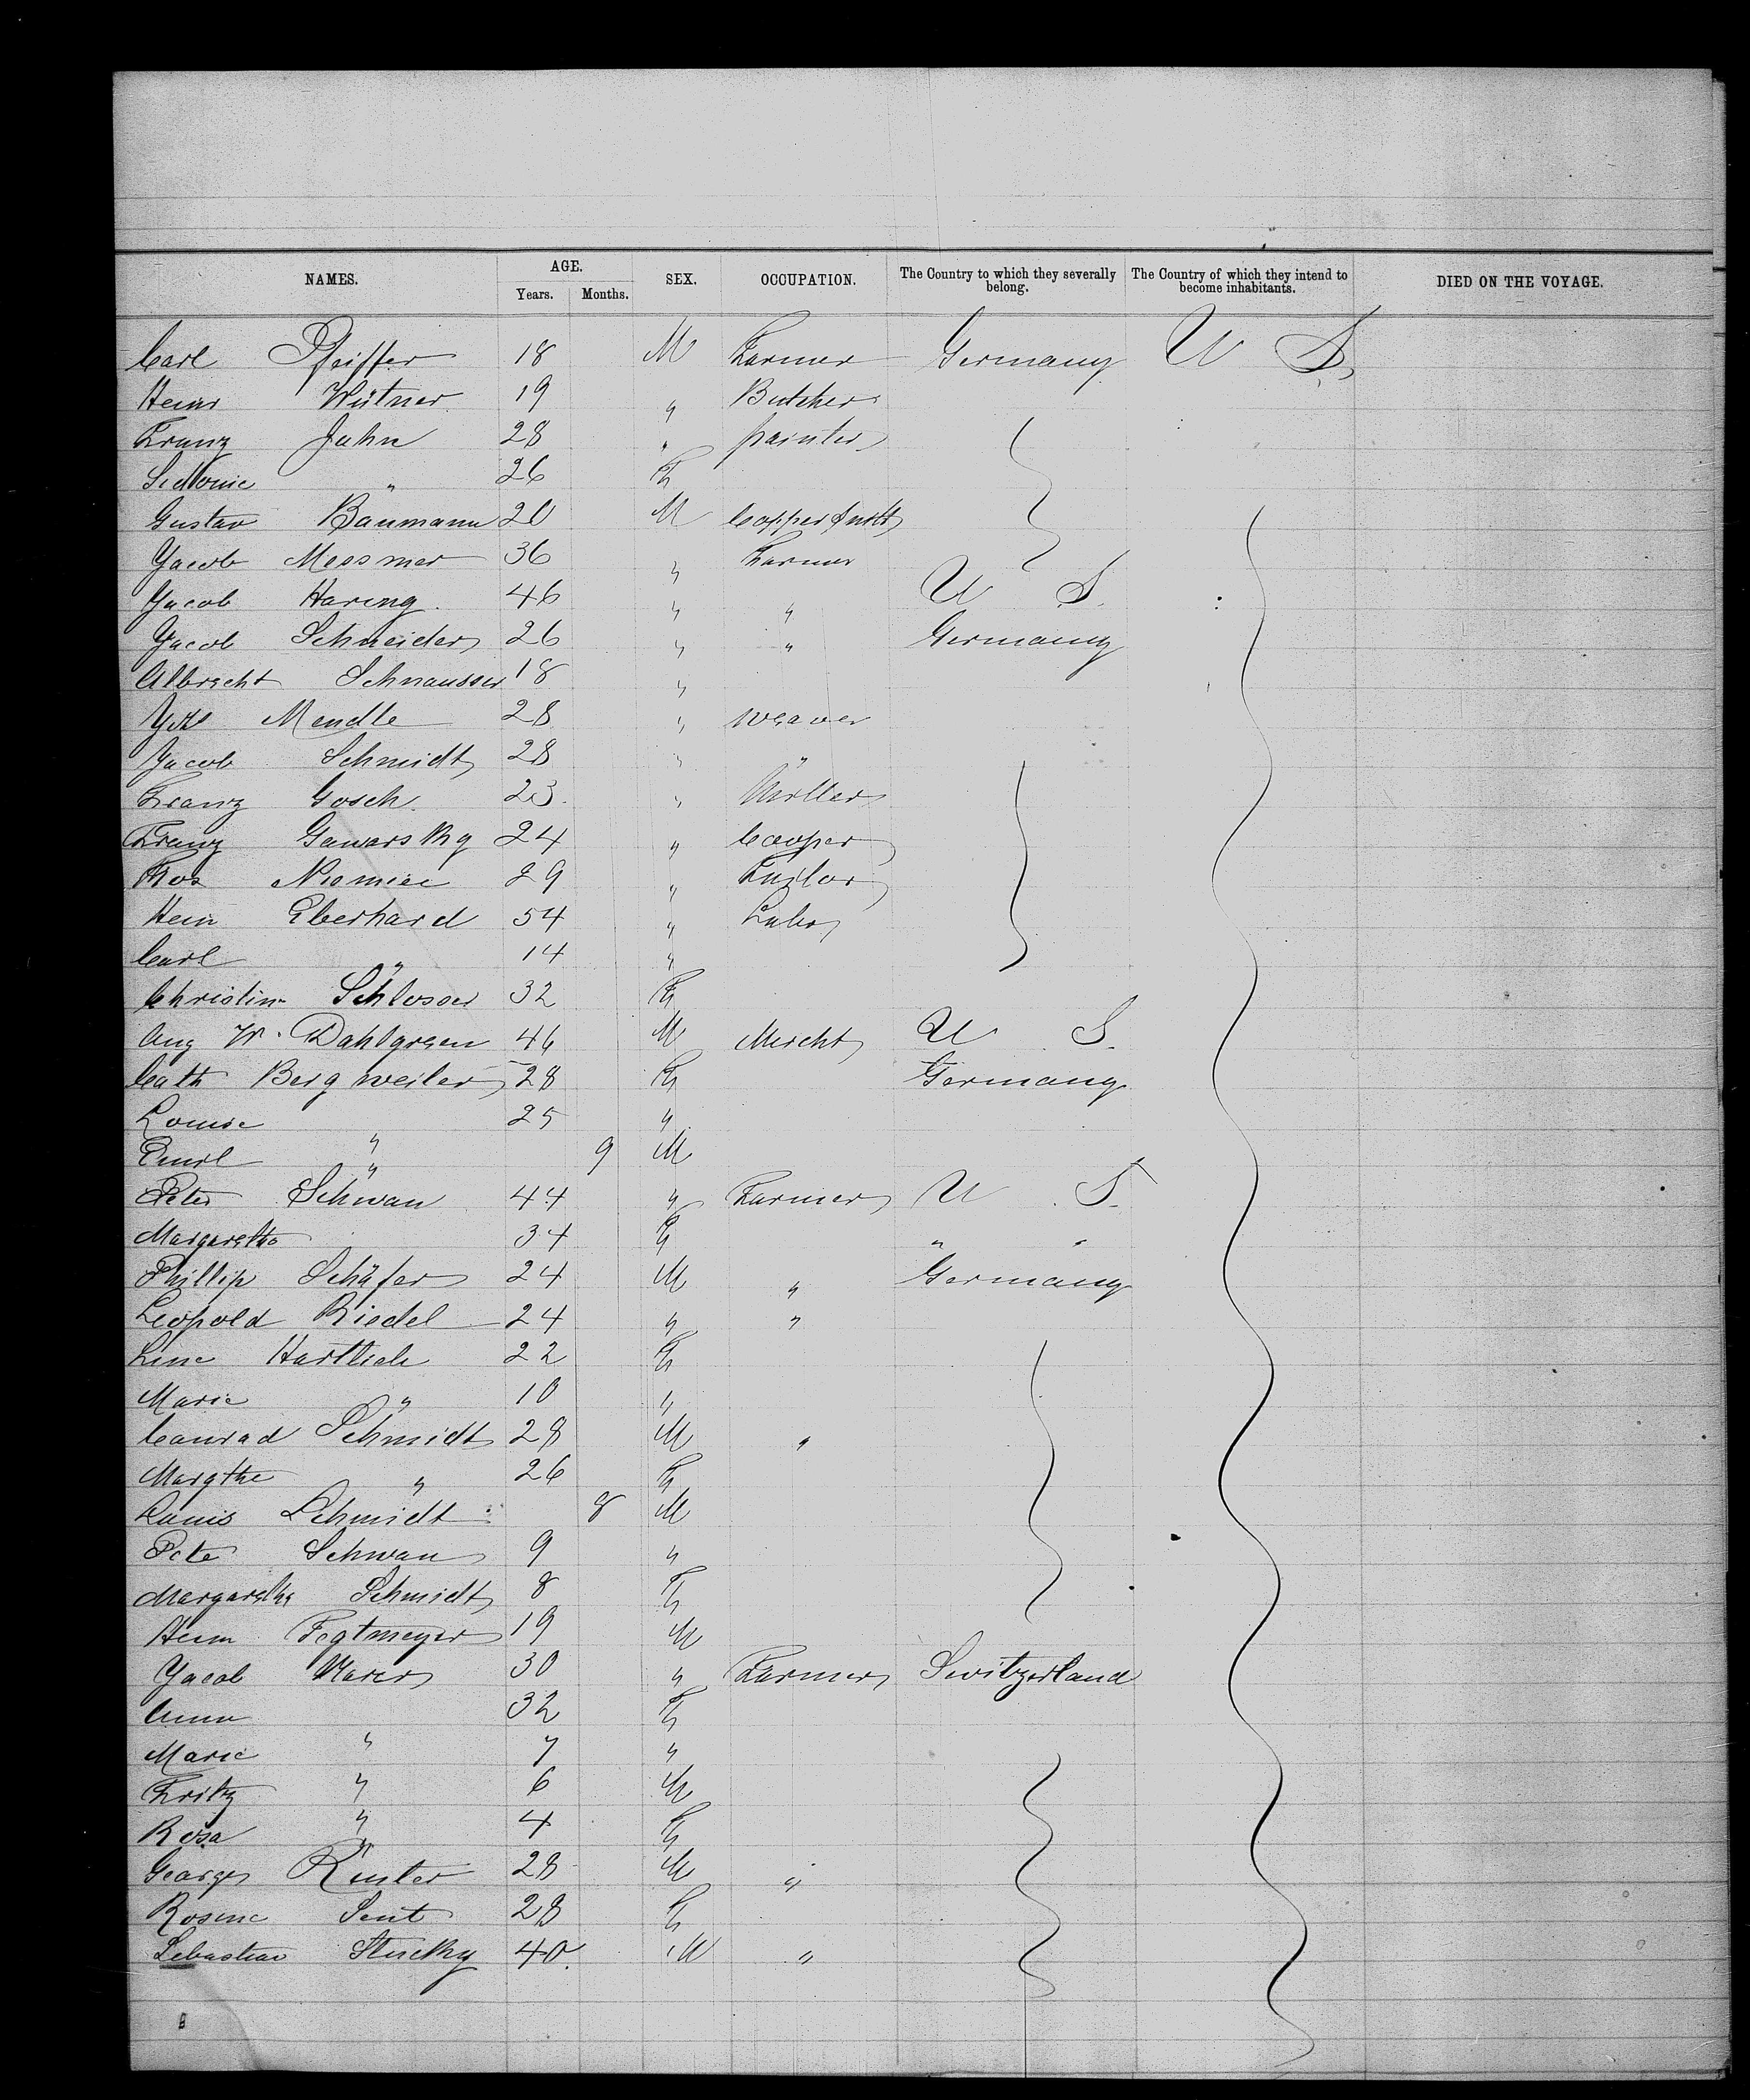 NAMES. AGE. SEX. OCCUPATION. The Country to which they severally belong. The Country of which they intend to become inhabitants. DIED ON THE VOYAGE.
Years. Months.
Carl Pfeiffer 18 M Farmer Germany U S
Heinr Wütner 19 " Butcher
Franz Jahn 28 " painter
Sidonie " 26 F
Gustav Baumann 20 M Coppersmith
Jacob Messmer 36 " Farmer
Jacob Haring 46 " " U S.
Jacob Schneider 26 " " Germany
Albrecht Schnausser 18 "
Mendle 28 " weaver
Jacob Schmidt 28 " "
Franz Gosch 23 " Miller
Franz Gawarsky 24 " Cooper
Niemiec 29 " Tailor
Hein Eberhard 54 " Labor
Carl " 14 "
Christine Schlosser 32 F
Aug W. Dahlgreen 46 M Mercht U S.
Cath Bergweiler 28 F Germany
Louise " 25 "
Emil " 9 M
Peter Schwan 44 " Farmer U S.
Margaretha 34 F " "
Phillip Schäfer 24 M " Germany
Leopold Riedel 24 " "
Line Hartlieb 22 F
Marie " 10 "
Conrad Schmidt 28 M "
Margthe " 26 F
Louis Schmidt 8 M
Pete Schwan 9 "
Margaretha Schmidt 8 F
Herm Fegtmeyer 19 M
Jacob 30 " Farmer Switzerland
Anna 32 F
Marie " 7 "
Fritz " 6 M
Rosa " 4 F
George 28 M "
Rosine Sent 28 F
Sebastian Stucky 40. M "